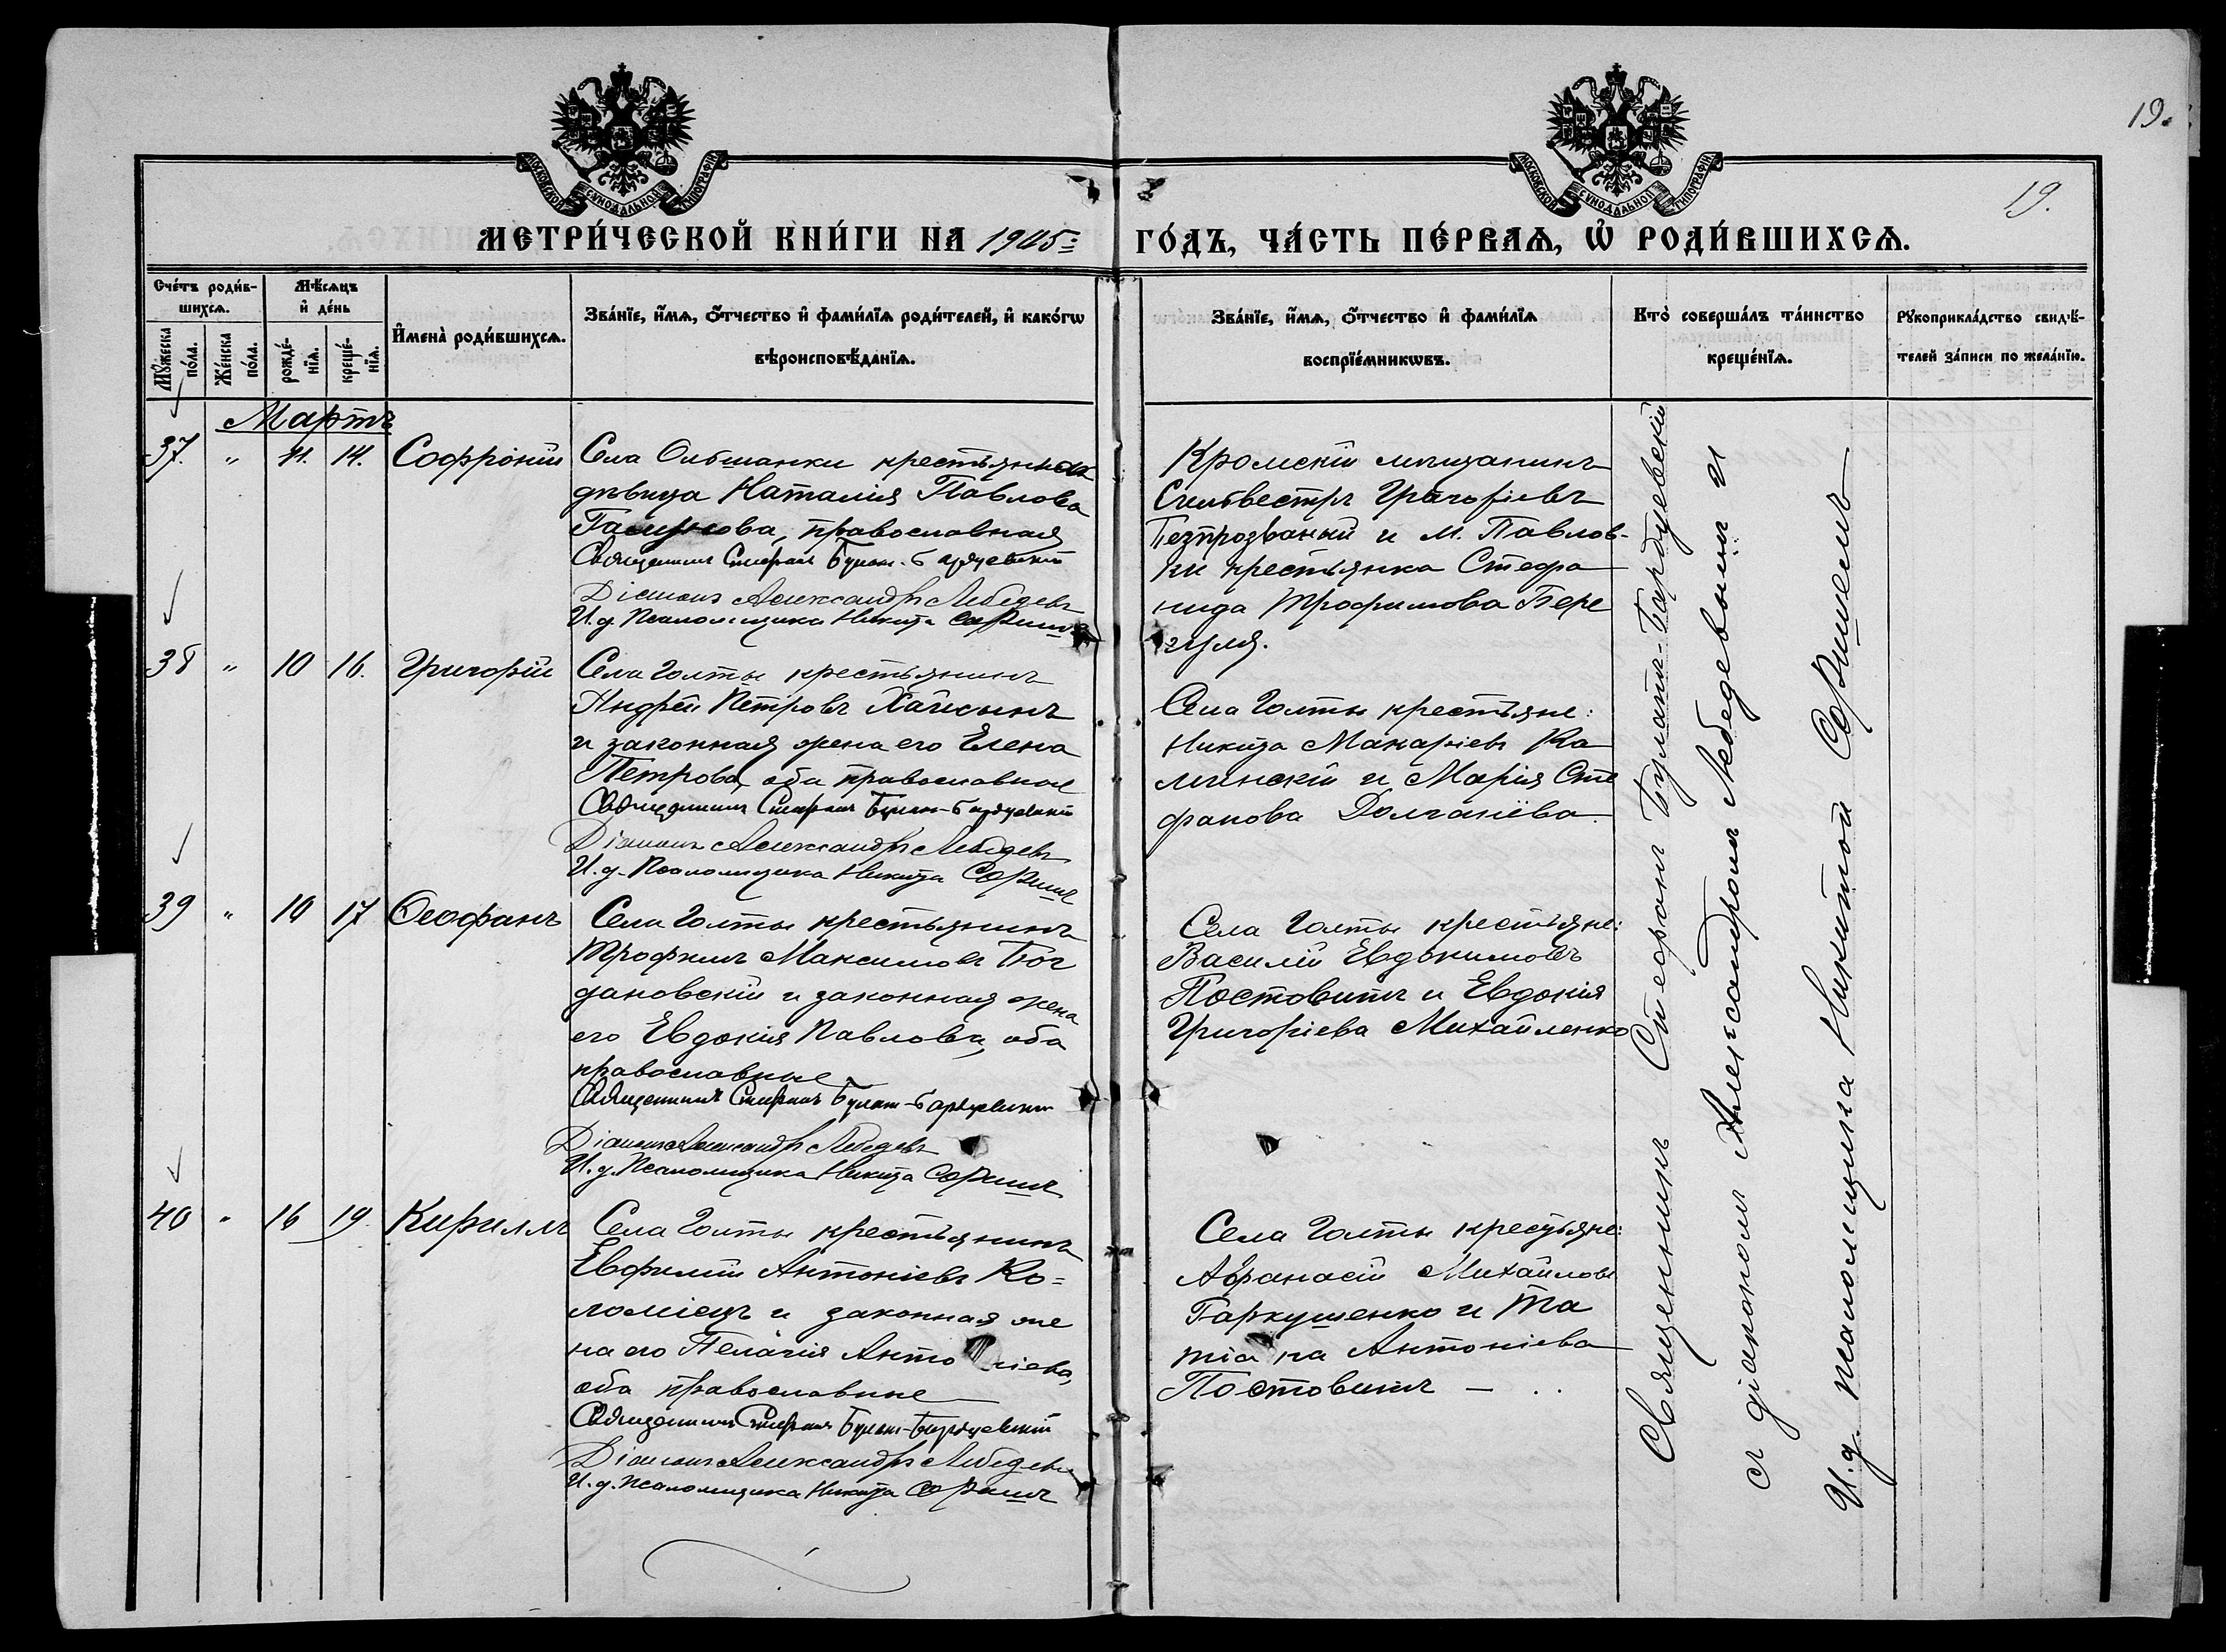 19.
19.
МОСКОВСКОЙ СУНОДАЛЬНОЙ ТИПОГРАФІИ
МОСКОВСКОЙ СУНОДАЛЬНОЙ ТИПОГРАФІИ
МЕТРИ́ЧЕСКОЙ КНИ́ГИ НА 1905 =
ГО́ДЪ, ЧА́СТЬ ПЕ́РВАѦ, Ѡ҆ РОДИ́ВШИХСѦ.
Сче́тъ роди́в-
шихсѧ.
Мꙋ́жеска по́ла.
Же́нска по́ла.
Мѣ́сѧцъ
и҆ де́нь
рожде́-
нїѧ.
креще́-
нїѧ.
И҆мена̀ роди́вшихсѧ.
Зва́нїе, и҆́мѧ, ѻ҆́тчество и҆ фами́лїѧ роди́телей, и҆ како́гѡ
вѣроисповѣ́данїѧ.
Зва́нїе, и҆́мѧ, ѻ҆́тчество и҆ фами́лїѧ
воспрїе́мникѡвъ.
Кто̀ соверша́лъ та́инство
креще́нїѧ.
Рꙋкоприкла́дство свидѣ́-
телей за́писи по жела́нїю.
Мартъ
37. " 11. 14. Софроній
Села Ольшанки крестьянская
дѣвица Наталія Павлова
православная
Священникъ Стефанъ Булат-Бардуевскій
Діаконъ Александръ Лебедевъ
И. д. Псаломщика Никита Соришъ
Кромскій мѣщанинъ
Сильвестръ Григоріевъ
Безпрозваный и м. Павлов-
ки крестьянка Стефа
нида Трофимова Пере
гуля.
38 " 10 16. Григорій
Села Голты крестьянинъ
Андрей Петровъ Хайсынъ
и законная жена его Елена
Петрова, оба православные
Священникъ Стефанъ Булат-Бардуевскій
Діаконъ Александръ Лебедевъ
И. д. Псаломщика Никита Соришъ
Села Голты крестьяне:
Никита Макаріевъ Ка
минскій и Марія Сте
фанова Долганіева
39 " 10 17 Ѳеофанъ
Села Голты крестьянинъ
Трофимъ Максимовъ Бог
дановскій и законная жена
его Евдокія Павлова, оба
православные
Священникъ Стефанъ Булат-Бардуевскій
Діаконъ Александръ Лебедевъ
И. д. Псаломщика Никита Соришъ
Села Голты крестьяне:
Василій Евдокимовъ
Постовитъ и Евдокія
Григоріева Михайленко
40 " 16 19. Кириллъ
Села Голты крестьянинъ
Евфимій Антоніевъ Ко=
ломіецъ и законная же
на его Пелагія Антоніева,
оба православные
Священникъ Стефанъ Булат-Бардуевскій
Діаконъ Александръ Лебедевъ
И. д. Псаломщика Никита Соришъ
Села Голты крестьяне:
Афанасій Михайловъ
Гаркушенко и Та
тіана Антоніева
Постовитъ —
Священникъ Стефанъ Булатъ-Бардуевскій
съ діакономъ Александромъ Лебедевымъ и
И. д. псаломщика Никитой Соришемъ